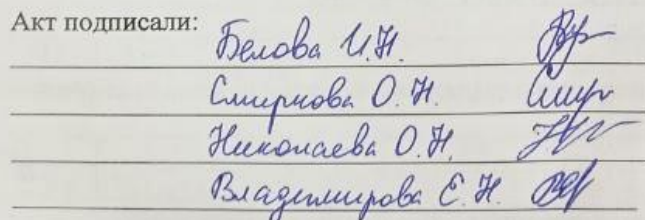 Акт подписали: Белова И.Н.
Смирнова О.Н.
Николаева О.Н.
Владимирова Е.Н.